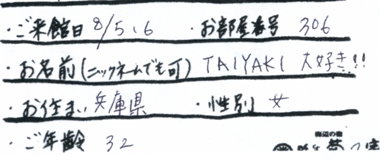 ・ご来館日 8/5、6 ・お部屋番号 306
・お名前(ニックネームでも可) TAIYAKI 大好き!!
・お住まい 兵庫県 ・性別 女
・ご年齢 32